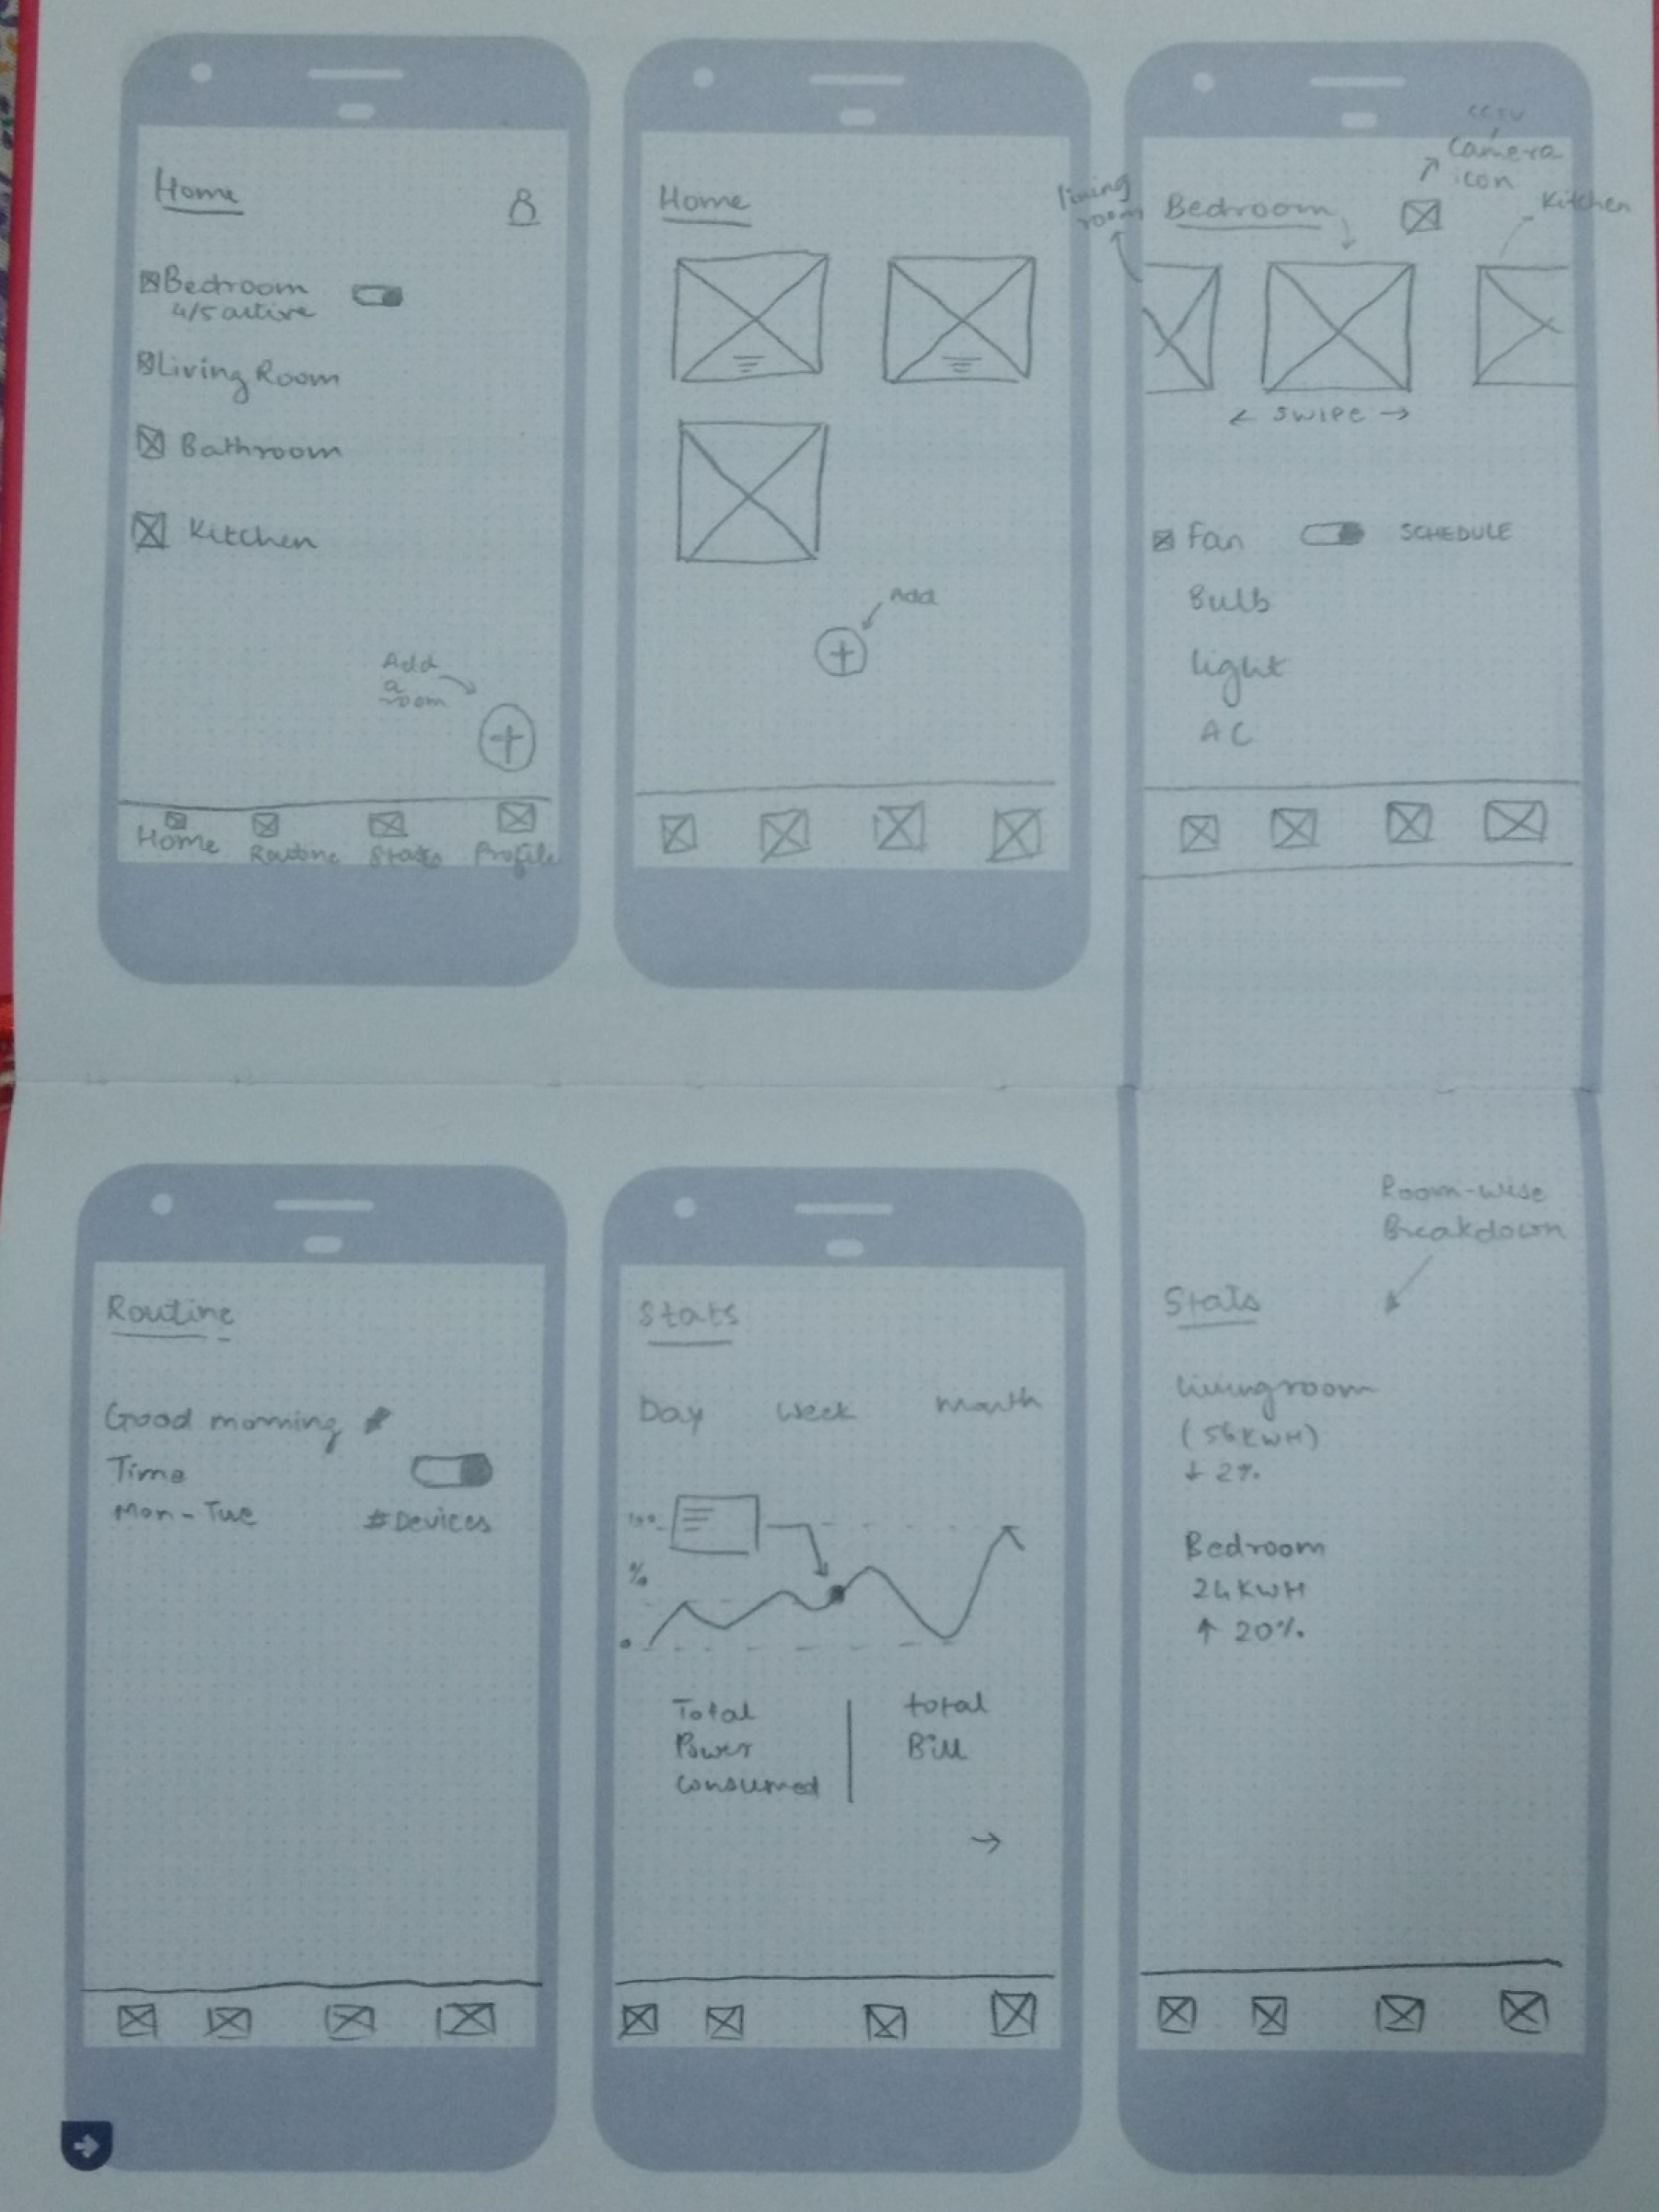 Home
Bedroom
4/5 active
Living Room
Bathroom
Kitchen
Add
a
room
Home
Routine
Stats
Profile
Home
Add
CCTV
Camera
icon
living
room
Bedroom
Kitchen
← SWIPE →
Fan
SCHEDULE
Bulb
light
AC
Routine
Good morning
Time
Mon - Tue
# Devices
Stats
Day
Week
Month
100
%
0
Total
Power
Consumed
total
Bill
→
Room-wise
Breakdown
Stats
livingroom
(56KWH)
↓ 2%
Bedroom
24KWH
↑ 20%